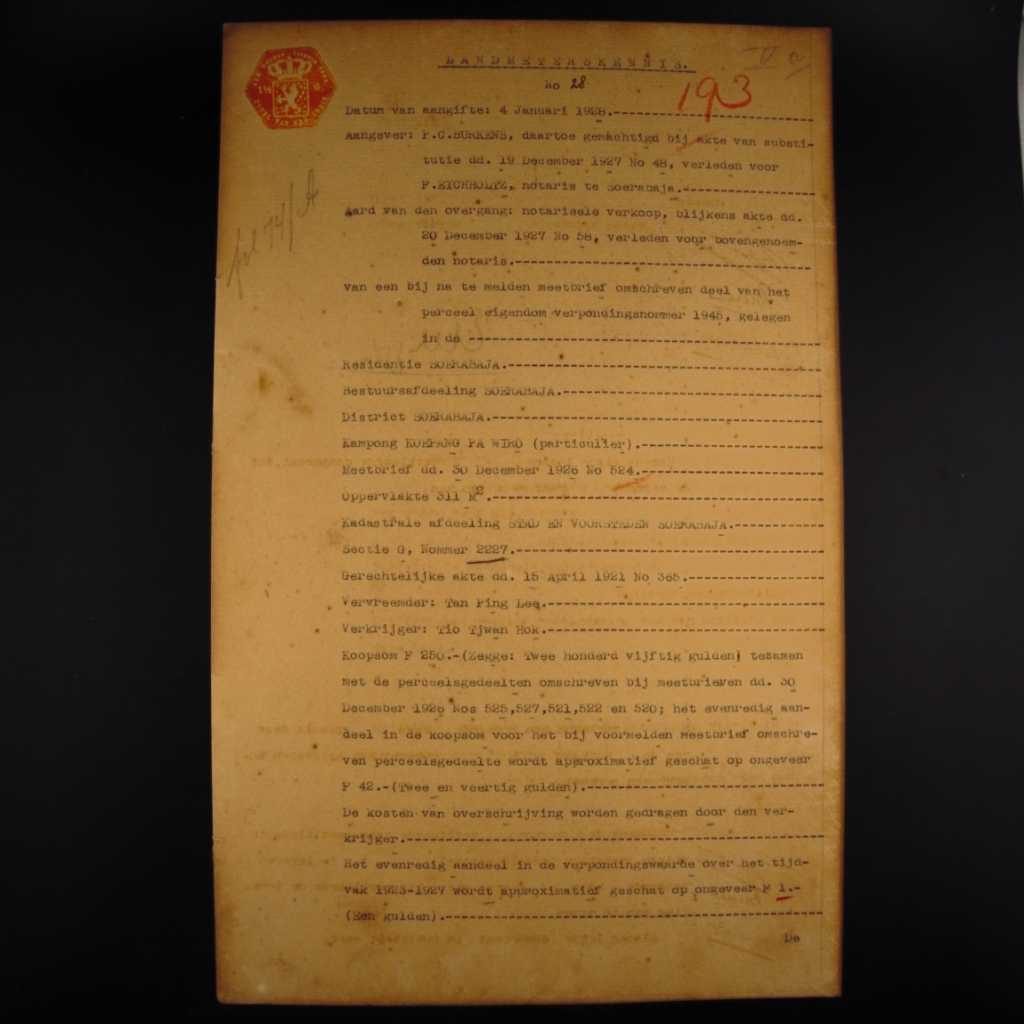 LANDMETERSKENNIS.
No 28
193
Datum van aangifte: 4 Januari 1928.
Aangever: F.C.BURKENS, daartoe gemachtigd bij akte van substi-
tutie dd. 19 December 1927 No 48, verleden voor
F.EYCHHOLTZ, notaris te Soerabaja.
Aard van den overgang: notarieele verkoop, blijkens akte dd.
20 December 1927 No 58, verleden voor bovengenoem-
den notaris.
van een bij na te melden meetbrief omschreven deel van het
perceel eigendom verpondingsnommer 1945, gelegen
in de
Residentie SOERABAJA.
Bestuursafdeeling SOERABAJA.
District SOERABAJA.
Kampong KOEPANG PA WIRO (particulier).
Meetbrief dd. 30 December 1926 No 524.
Oppervlakte 311 M2.
Kadastrale afdeeling STAD EN VOORSTEDEN SOERABAJA.
Sectie G, Nommer 2227.
Gerechtelijke akte dd. 15 April 1921 No 365.
Vervreemder: Tan Ping Lee.
Verkrijger: Tio Tjwan Hok.
Koopsom F 250.-(Zegge: Twee honderd vijftig gulden) tezamen
met de perceelsgedeelten omschreven bij meetbrieven dd. 30
December 1926 Nos 525,527,521,522 en 520; het evenredig aan-
deel in de koopsom voor het bij voormelden meetbrief omschre-
ven perceelsgedeelte wordt approximatief geschat op ongeveer
F 42.-(Twee en veertig gulden).
De kosten van overschrijving worden gedragen door den ver-
krijger.
Het evenredig aandeel in de verpondingswaarde over het tijd-
vak 1923-1927 wordt approximatief geschat op ongeveer F 1.-
(Een gulden).
De